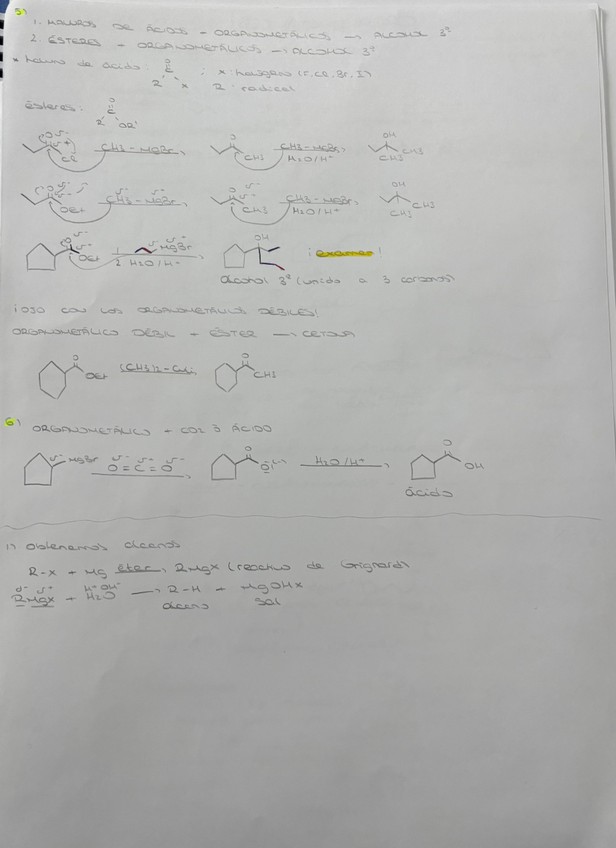 5)
1. HALUROS DE ÁCIDOS + ORGANOMETÁLICOS → ALCOHOL 3º
2. ÉSTERES + ORGANOMETÁLICOS → ALCOHOL 3º
* haluro de ácido: O C Z X ; X: halógeno (F, Cl, Br, I)
Z: radical
ésteres: O C Z OR'
O δ- δ+ Cl CH3-MgBr O CH3 CH3-MgBr H2O/H+ OH CH3 CH3
O δ- δ+ OEt δ- δ+ CH3-MgBr O δ- δ+ CH3 δ- δ+ CH3-MgBr H2O/H+ OH CH3 CH3
O δ- δ+ OEt 1 δ- δ+ MgBr 2 H2O/H+ OH ¡examen!
alcohol 3º (unido a 3 carbonos)
¡OJO CON LOS ORGANOMETÁLICOS DÉBILES!
ORGANOMETÁLICO DÉBIL + ÉSTER → CETONA
O OEt (CH3)2-CuLi O CH3
6) ORGANOMETÁLICO + CO2 → ÁCIDO
δ- δ+ MgBr δ- δ+ δ- O=C=O O O(-) H2O/H+ O OH
ácido
1) Obtenemos alcanos
R-X + Mg éter → RMgX (reactivo de Grignard)
δ- δ+ RMgX + H+ OH- H2O → R-H + MgOHX
alcano sal